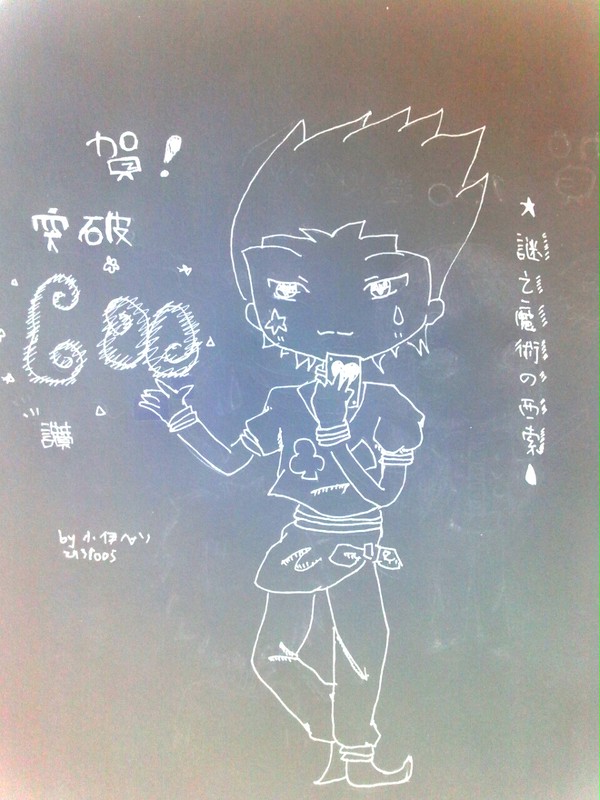 賀!
突破
600
讚
by 小伊ベン
2131005
★謎之魔術の西索